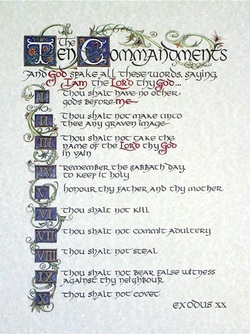 the
Ten Commandments
and God spake all these words, saying
I am the Lord thy God...
I thou shalt have no other
gods before me
II thou shalt not make unto
thee any graven image
III thou shalt not take the
name of the Lord thy God
in vain
IV remember the sabbath day
to keep it holy
V honour thy father and thy mother
VI thou shalt not kill
VII thou shalt not commit adultery
VIII thou shalt not steal
IX thou shalt not bear false witness
against thy neighbour
X thou shalt not covet
EXODUS XX